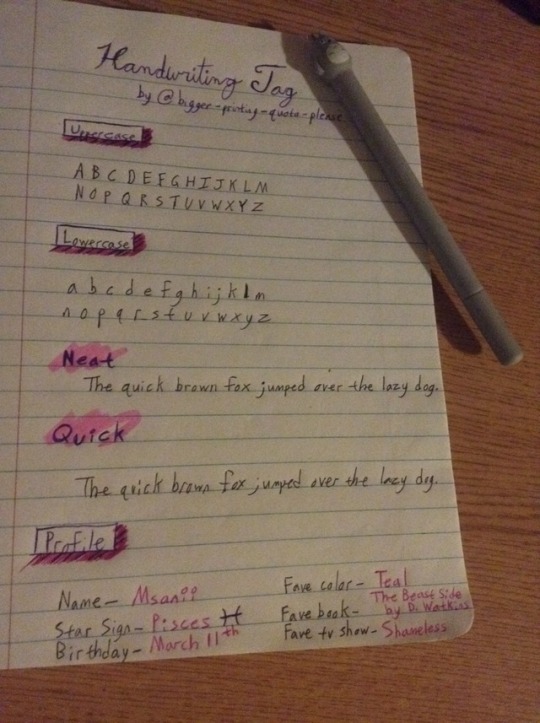 Handwriting Tag
by @bigger-printing-quota-please
Uppercase
A B C D E F G H I J K L M
N O P Q R S T U V W X Y Z
Lowercase
a b c d e f g h i j k l m
n o p q r s t u v w x y z
Neat
The quick brown fox jumped over the lazy dog.
Quick
The quick brown fox jumped over the lazy dog.
Profile
Name- Msanii
Star Sign- Pisces ♓
Birthday- March 11th
Fave color- Teal
Fave book- The Beast Side
by D. Watkins
Fave tv show- Shameless